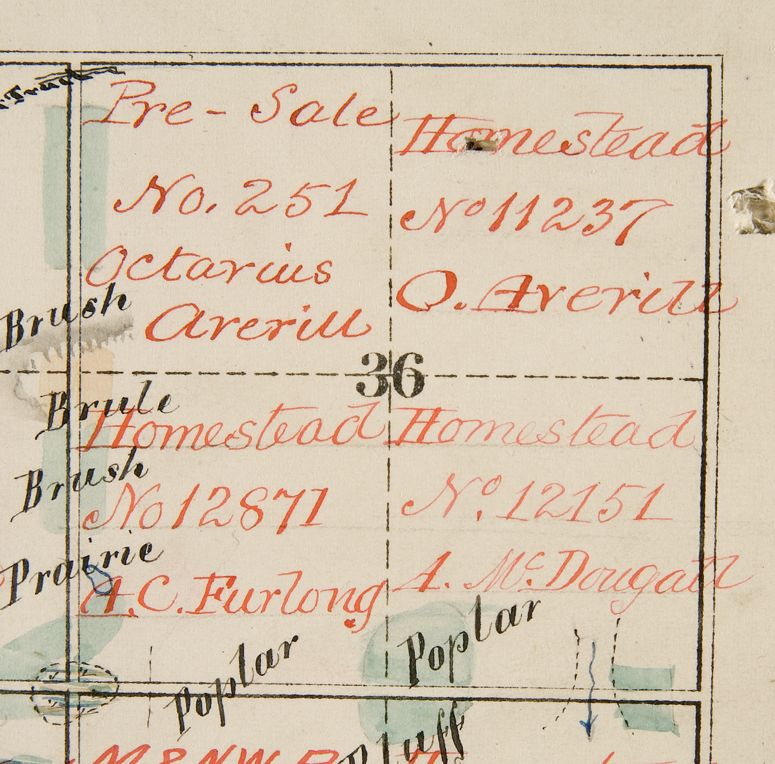 Pre-Sale
No. 251
Octavius
Averill
Homestead
No 11237
O. Averill
36
Brush
Brule
Brush
Prairie
Homestead
No 12871
A.C. Furlong
Homestead
No. 12151
A. McDougall
Poplar
Poplar
Bluff